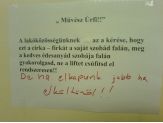 „ Művész Úrfi!!"
A lakóközösségünknek az a kérése, hogy
ezt a cirka – firkát a saját szobád falán, meg
a kedves édesanyád szobája falán
gyakorolgasd, ne a liftet csúfítsd el
rendszeresen!!
De ha elkapunk jobb ha